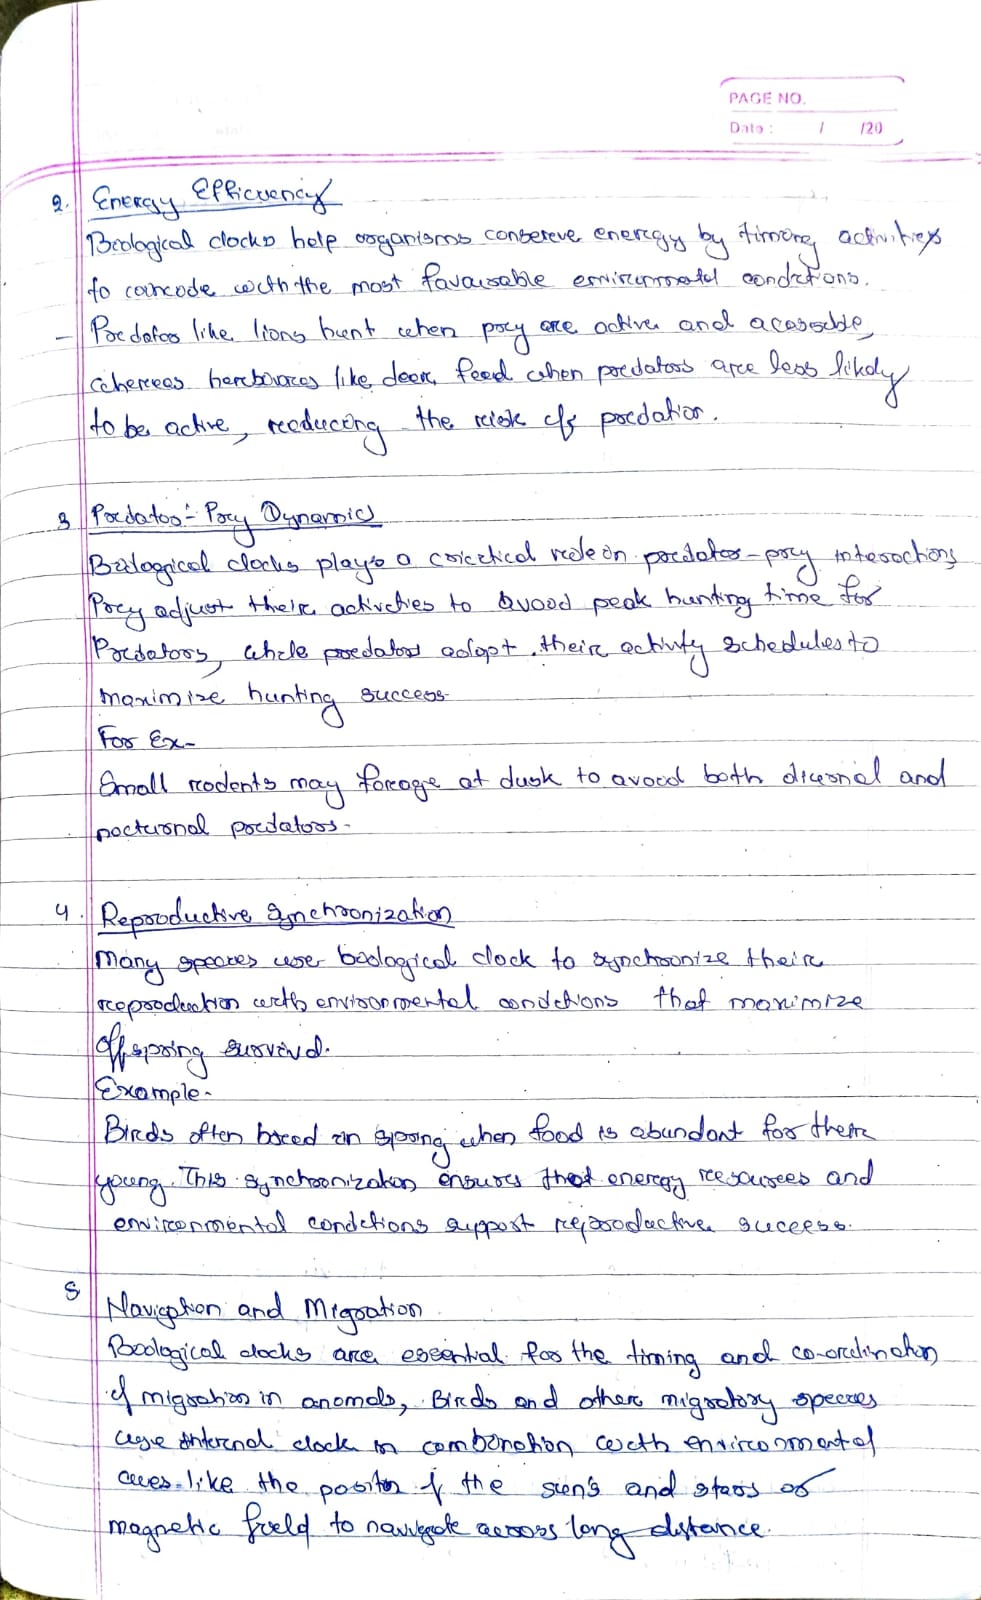 PAGE NO.
Date : / /20
2. Energy Efficiency
Biological clocks help organisms conserve energy by timing activities
to coincide with the most favourable environmental conditions.
- Predator like lions hunt when prey are active and accessible,
whereas herbivores like deer, feed when predators are less likely
to be active, reducing the risk of predation.
3 Predator-Prey Dynamics
Biological clocks plays a critical role in predator-prey interactions
Prey adjust their activities to avoid peak hunting time for
Predators, while predators adapt their activity schedules to
maximize hunting success.
For Ex-
Small rodents may forage at dusk to avoid both diurnal and
nocturnal predators.
4. Reproductive Synchronization
Many species use biological clock to synchronize their
reproduction with environmental conditions that maximize
offspring survival.
Example-
Birds often breed in spring when food is abundant for their
young. This synchronization ensures that energy resources and
environmental conditions support reproductive success.
5 Navigation and Migration
Biological clocks are essential for the timing and co-ordination
of migration in animals, Birds and other migratory species
use internal clock in combination with environmental
cues like the position of the sun's and stars or
magnetic field to navigate across long distance.